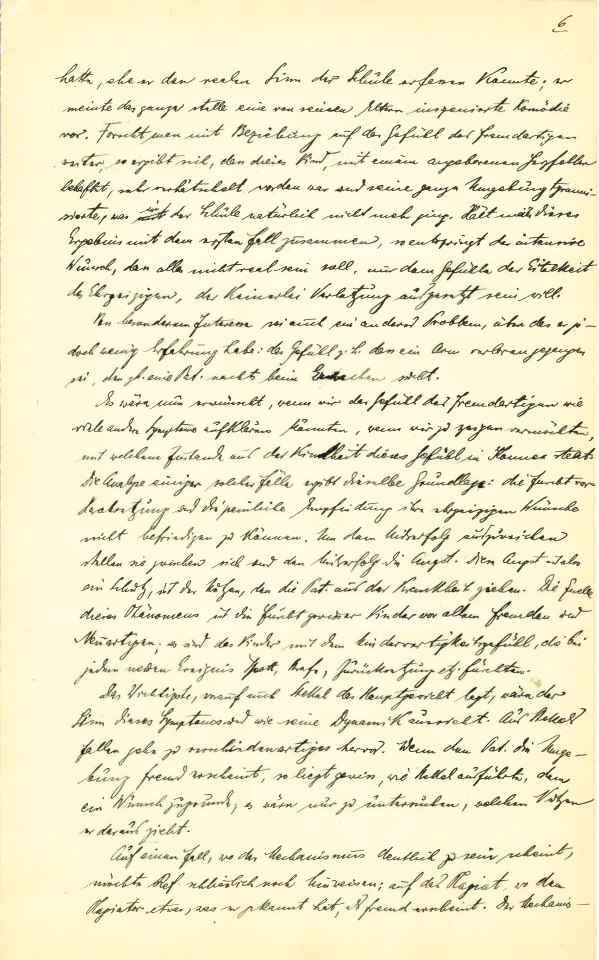 6
hatte, ehe er den realen Sinn der Schule erfassen konnte; er
meinte das ganze stelle eine von seinen Eltern inszenierte Komödie
vor. Forscht man mit Beziehung auf das Gefühl des Fremdartigen
weiter, so ergibt sich, dass dieses Kind, mit einem angeborenen Herzfehler
behaftet, sehr verhätschelt worden war und seine ganze Umgebung tyranni-
sierte, was in der Schule natürlich nicht mehr ging. Hält man dieses
Ergebnis mit dem ersten Fall zusammen, so entspringt der intensive
Wunsch, dass alles nicht real sein soll, nur dem Gefühle der Eitelkeit
des Ehrgeizigen, der keinerlei Verletzung ausgesetzt sein will.
Von besonderem Interesse sei auch ein anderes Problem, über das er je-
doch wenig Erfahrung habe: das Gefühl z.B. dass ein Arm verloren gegangen
sei, das z.B. eine Pat. nachts beim Erwachen hat.
Es wäre nun erwünscht, wenn wir das Gefühl des Fremdartigen wie
viele andere Symptome aufklären könnten, wenn wir zu zeigen vermöchten,
mit welchem Zustande aus der Kindheit dieses Gefühl in Konnex steht.
Die Analyse einiger solcher Fälle ergibt dieselbe Grundlage: die Furcht vor
Herabsetzung und die peinliche Empfindung ihre ehrgeizigen Wünsche
nicht befriedigen zu können. Um dem Misserfolg auszuweichen
stellen sie zwischen sich und den Misserfolg die Angst. Diese Angst ist also
ein Schutz, ist der Nutzen, den die Pat. aus der Krankheit ziehen. Die Quelle
dieses Phänomens ist die Furcht gewisser Kinder vor allem Fremden und
Neuartigen; es sind das Kinder mit dem Minderwertigkeitsgefühl, die bei
jedem neuen Ereignis Spott, Strafe, Zurücksetzung etz. fürchten.
Das Wichtigste, worauf auch Stekel das Hauptgewicht legt, wäre der
Sinn dieses Symptoms und wie seine Dynamik aussieht. Aus Stekels
Fällen gehe zu verschiedenartiges hervor. Wenn dem Pat. die Umge-
bung fremd erscheint, so liegt gewiss, wie Stekel ausführte, dem
ein Wunsch zugrunde; es wäre nur zu untersuchen, welchen Nutzen
er daraus zieht.
Auf einen Fall, wo der Mechanismus deutlich zu sein scheint,
möchte Ref. schliesslich noch hinweisen; auf das Plagiat, wo dem
Plagiator etwas, was er gekannt hat, als fremd erscheint. Der Mechanis-